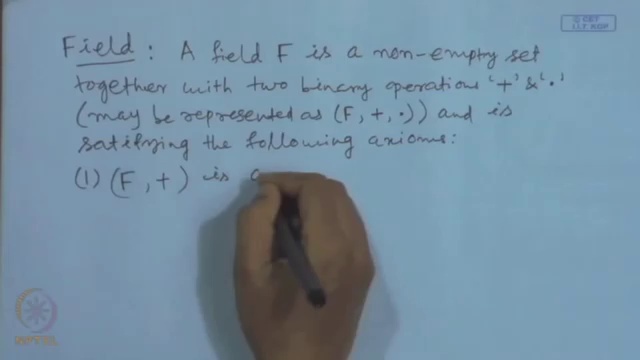 © CET
I.I.T. KGP
Field : A field F is a non-empty set
together with two binary operations '+' & '.'
(may be represented as (F, +, .)) and is
satisfying the following axioms:
(1) (F, +) is a
NPTEL